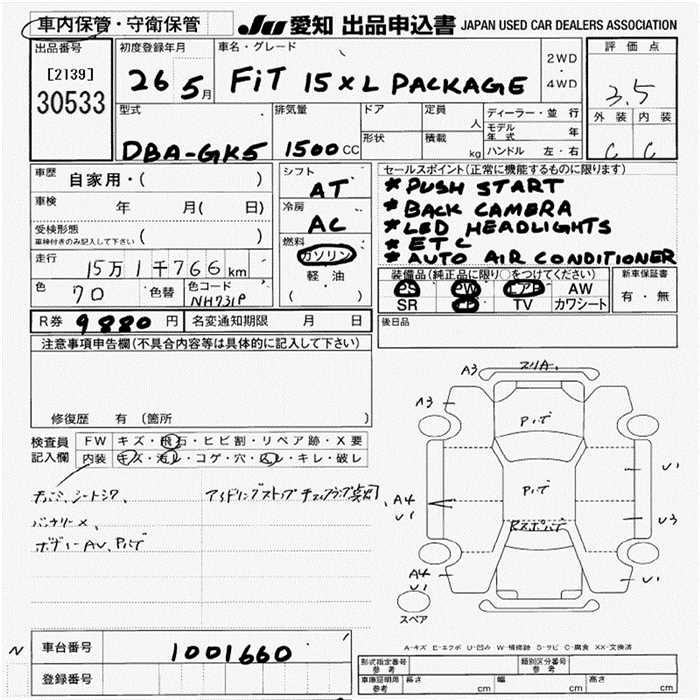 車内保管・守衛保管
JU 愛知 出品申込書 JAPAN USED CAR DEALERS ASSOCIATION
出品番号 初度登録年月 車名・グレード 2WD・4WD 評価点
[2139]
30533
26 5月 FiT 15XL PACKAGE 3.5
型式 排気量 ドア 定員 人 ディーラー・並行 外装 内装
モデル年式 年
形状 積載 kg ハンドル 左・右
DBA-GK5 1500cc C C
車歴 自家用・( ) シフト AT セールスポイント(正常に機能するものに限ります)
* PUSH START
* BACK CAMERA
* LED HEADLIGHTS
* ETC
* AUTO AIR CONDITIONER
車検 年 月( 日) 冷房 AC
受検形態
車検付きのみ記入して下さい ( )
燃料 ガソリン 軽・油 ( )
走行 15万1千766km
色 70 色替 色コード NH731P
装備品(純品正に限り○をつけてください) 新車保証書
PS PW エアB AW 有・無
SR TV カワシート
R券 9880円 名変通知期限 月 日 後日品
注意事項申告欄(不具合内容等は具体的に記入して下さい)
修復歴 有 (箇所 )
検査員記入欄 FW キズ・飛石・ヒビ割・リペア跡・X要
内装 キズ・汚レ・コゲ・穴・スレ・キレ・破レ
シートシワ
アイドリングストップ
バッテリーX
A3
A3
A4
U1
U1
U3
A4
U1
U1
スペア
A-キズ E-エクボ U-凹み W-補修跡 S-サビ C-腐食 XX-交換済
N 車台番号 1001660
登録番号
形式指定番号 参考 類別区分番号 参考
車庫証明用 参考 長さ cm 幅 cm 高さ cm